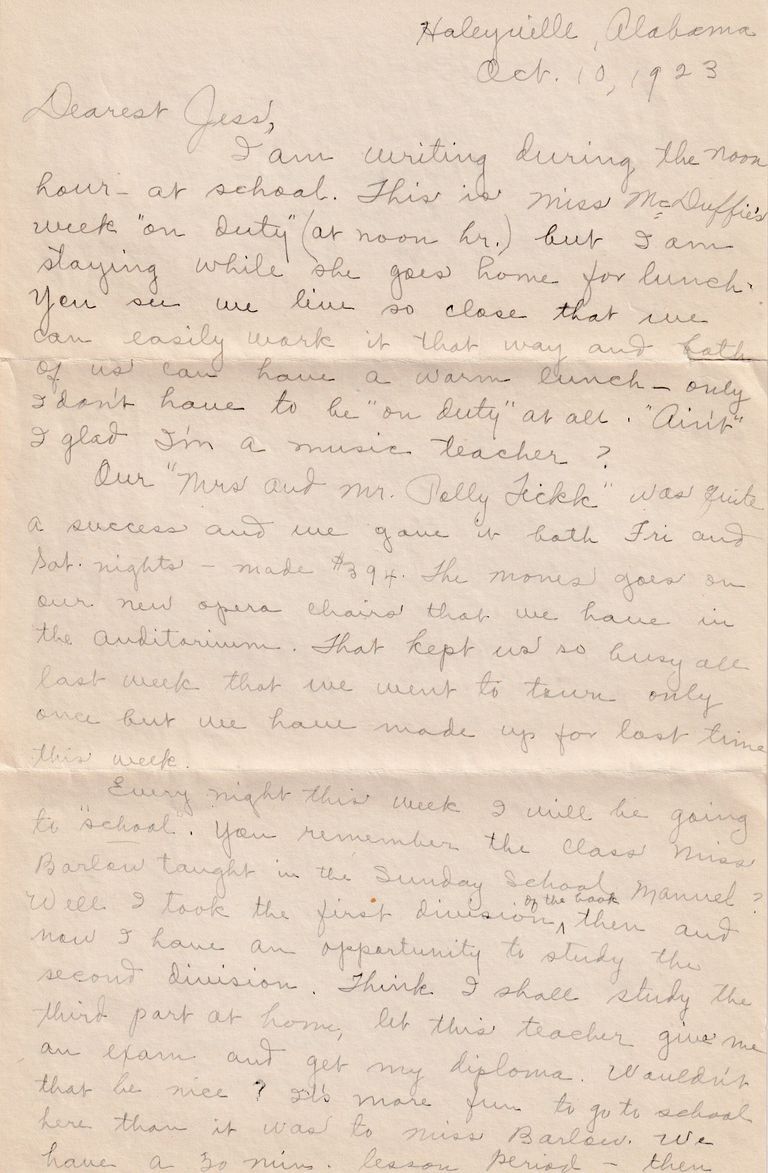 Haleyville, Alabama
Oct. 10, 1923
Dearest Jess,
I am writing during the noon
hour - at school. This is Miss McDuffie's
week "on duty" (at noon hr.) but I am
staying while she goes home for lunch.
You see we live so close that we
can easily work it that way and both
of us can have a warm lunch - only
I don't have to be "on duty" at all. "Ain't"
I glad I'm a music teacher?
Our "Mrs and Mr. Polly Tickk" was quite
a success and we gave it both Fri and
Sat. nights - made $394. The money goes on
our new opera chairs that we have in
the auditorium. That kept us so busy all
last week that we went to town only
once but we have made up for lost time
this week.
Every night this week I will be going
to "school". You remember the class Miss
Barlow taught in the Sunday School Manuel?
Well I took the first division of the book then and
now I have an opportunity to study the
second division. Think I shall study the
third part at home, let this teacher give me
an exam and get my diploma. Wouldn't
that be nice? It's more fun to go to school
here than it was to Miss Barlow. We
have a 30 min. lesson period - then